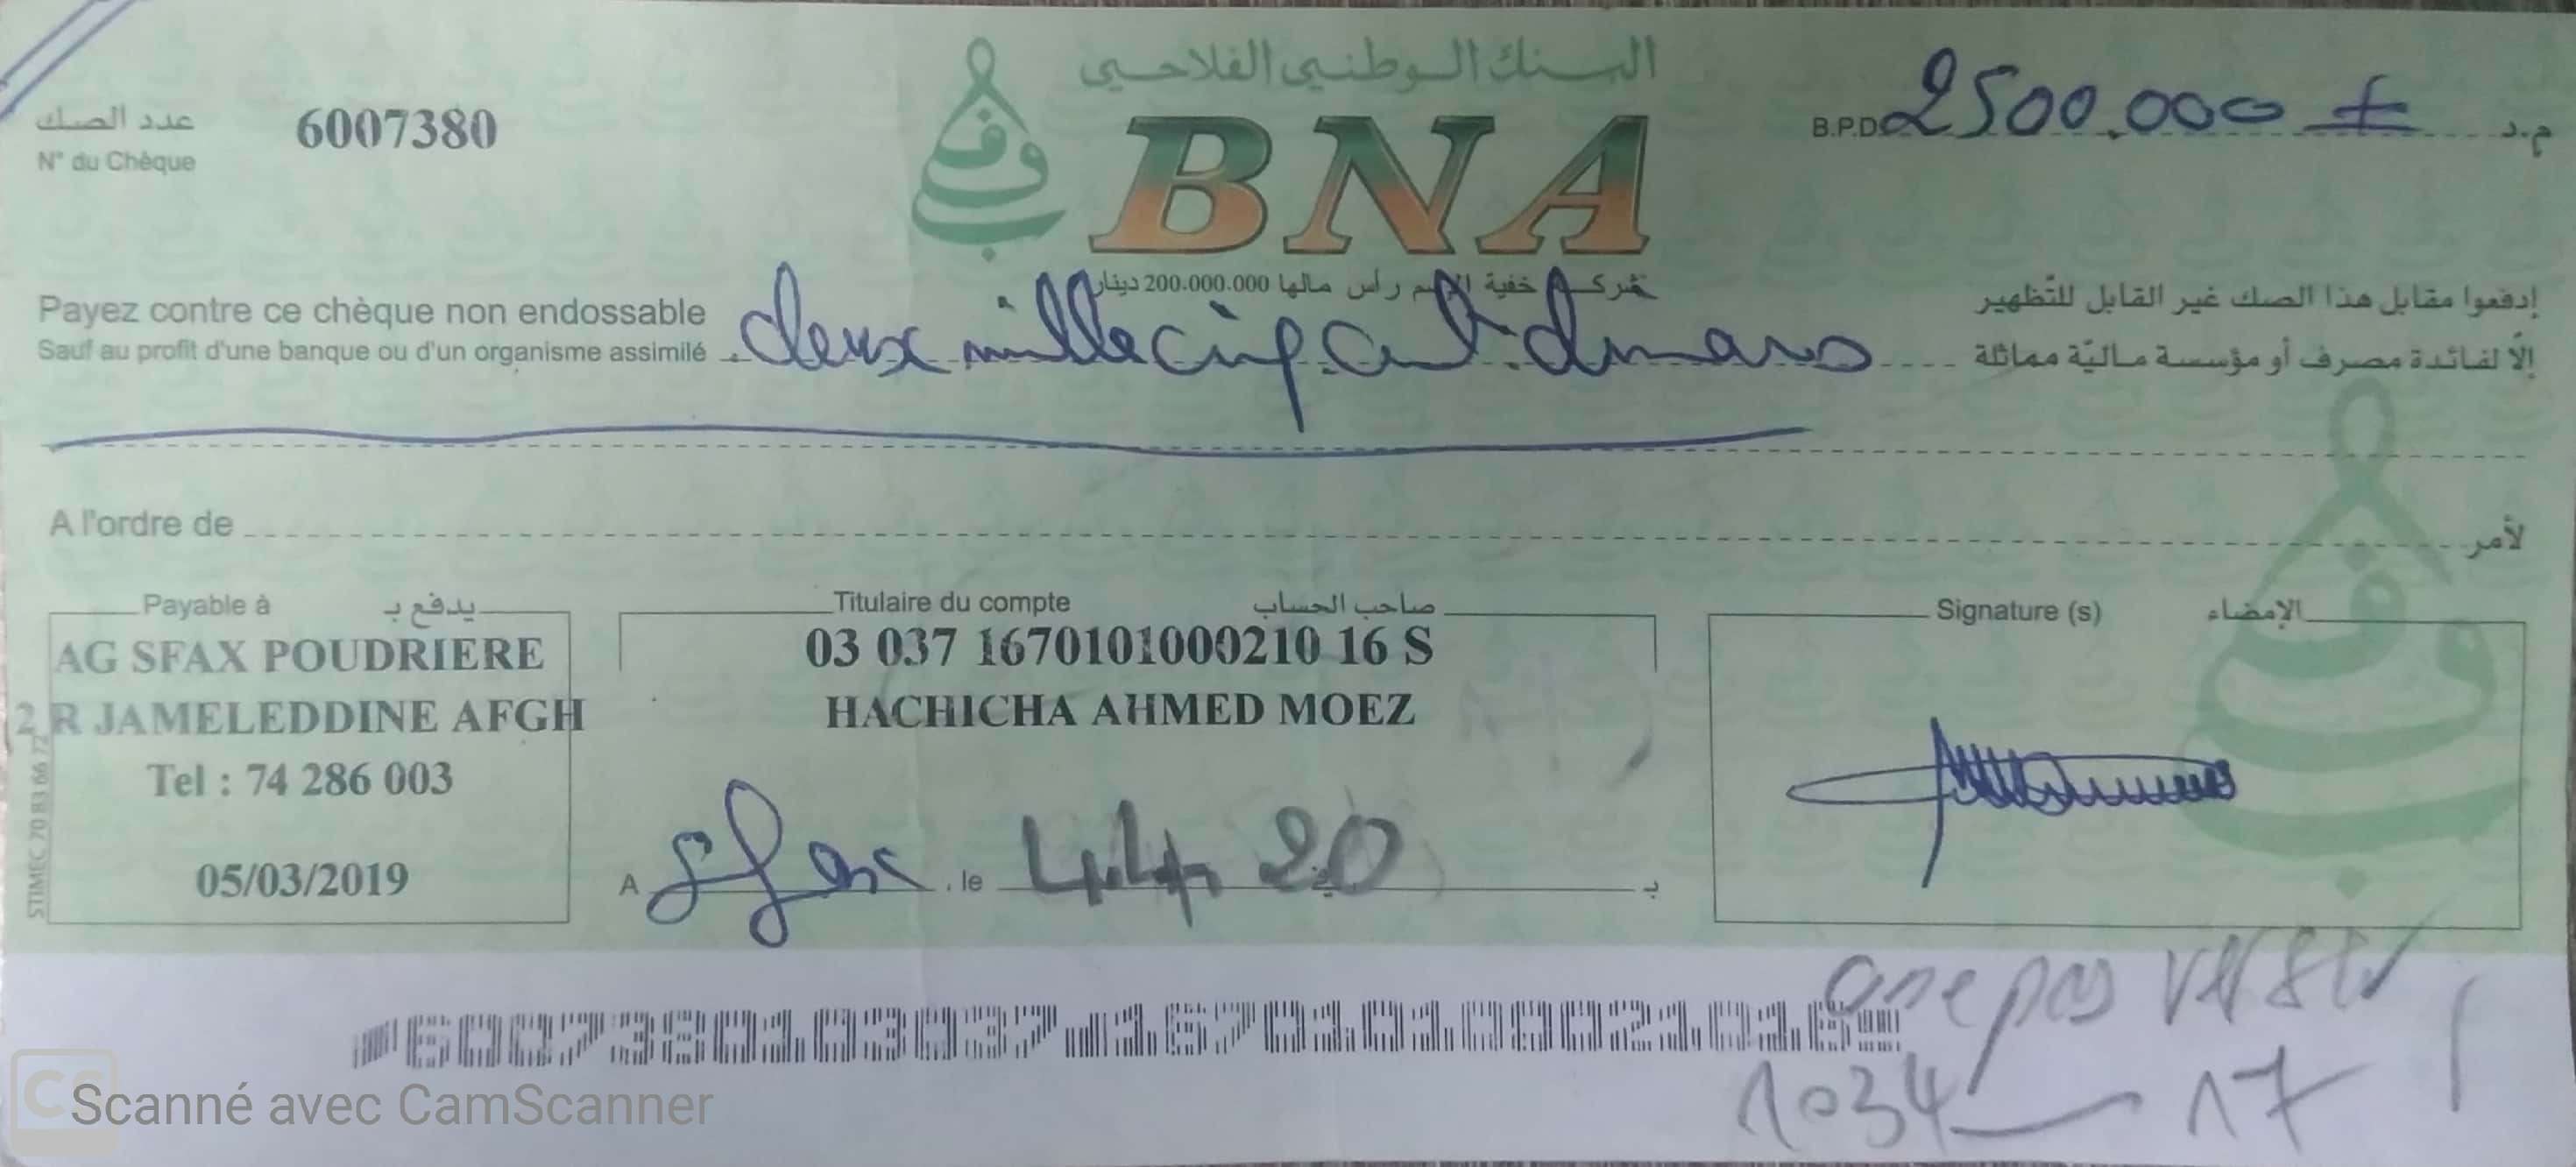 البنك الوطني الفلاحي
BNA
شركة خفية الإسم رأس مالها 200.000.000 دينار
عدد الصك
N° du Chèque
6007380
B.P.D 2500.000 م.د
Payez contre ce chèque non endossable
Sauf au profit d'une banque ou d'un organisme assimilé
deux mille cinq cent dinars
إدفعوا مقابل هذا الصك غير القابل للتّظهير
إلاّ لفائدة مصرف أو مؤسسة ماليّة مماثلة
A l'ordre de لأمر
Payable à يدفع بـ
AG SFAX POUDRIERE
2 R JAMELEDDINE AFGH
Tel : 74 286 003
05/03/2019
STIMEC 70 83 66 72
Titulaire du compte صاحب الحساب
03 037 1670101000210 16 S
HACHICHA AHMED MOEZ
A Sfax , le 4.4. 20 بـ
Signature (s) الإمضاء
a ne pas verser
1034 17
Scanné avec CamScanner
CS